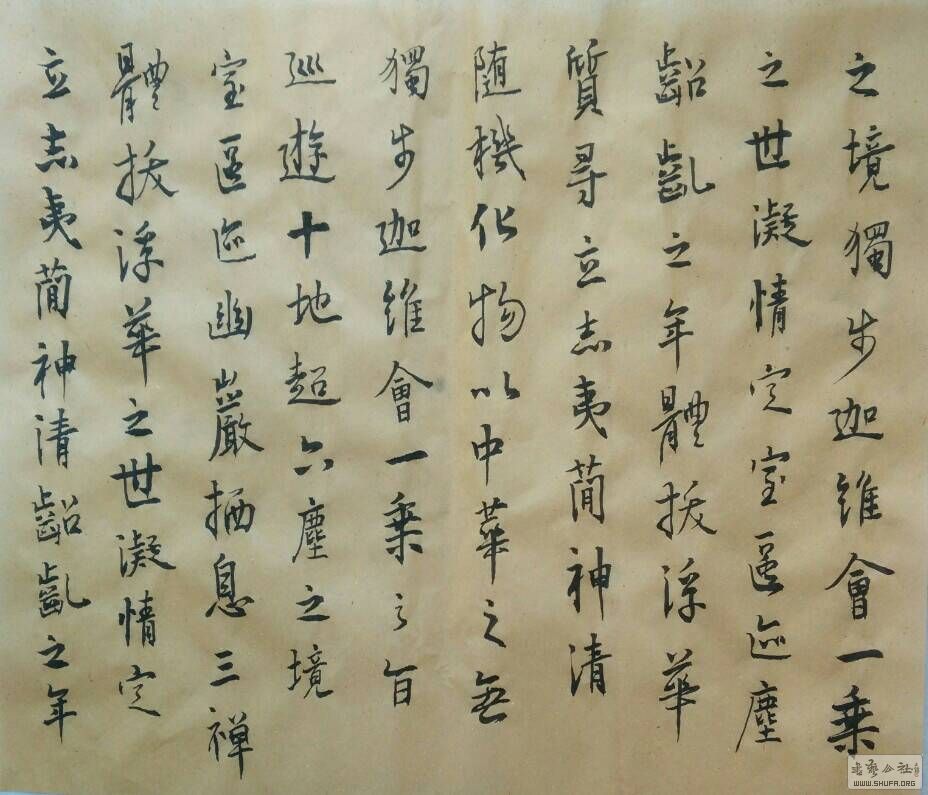 之境獨步迦維會一乘
之世凝情定室匿迹塵
齠齔之年體拔浮華
質尋立志夷簡神清
随機化物以中華之無
獨步迦維會一乘之旨
巡遊十地超六塵之境
室匿迹幽巖栖息三禪
體拔浮華之世凝情定
立志夷簡神清齠齔之年
書藝公社
WWW.SHUFA.ORG